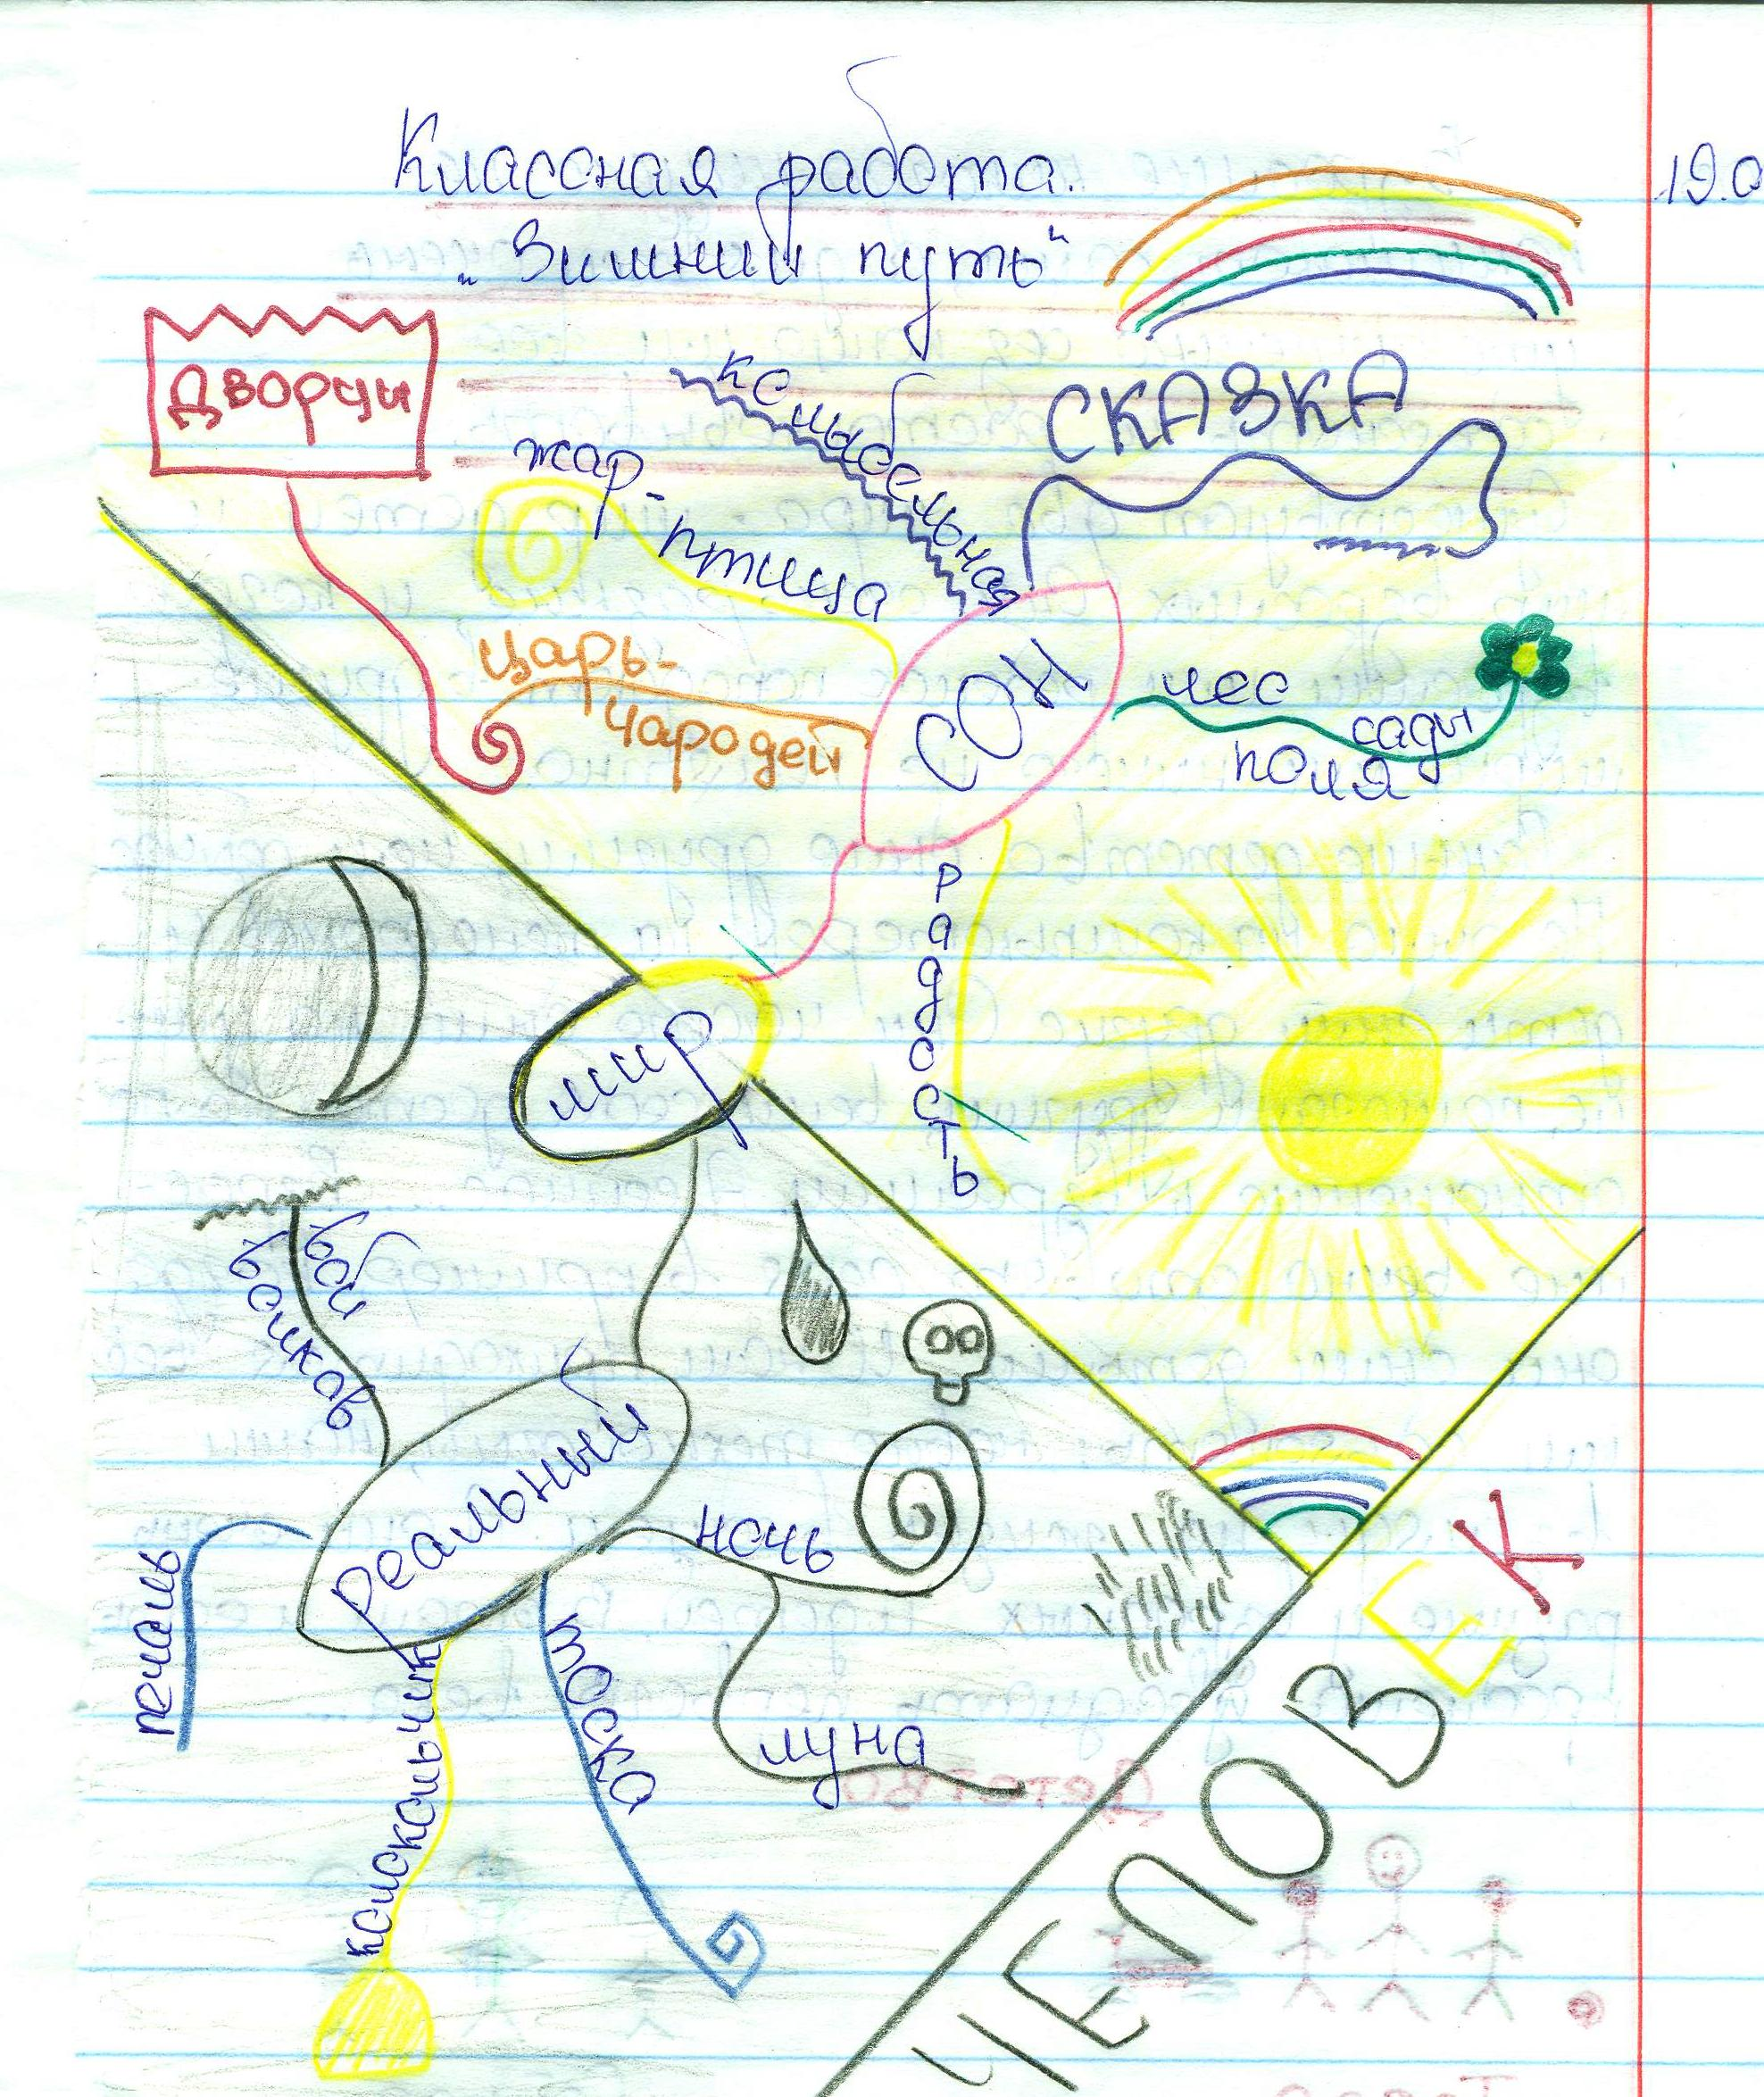 Классная работа.
19.0
„Зимний путь“
дворцы
колыбельная
СКАЗКА
жар-
птица
царь-
чародей
СОН
лес
сады
поля
радость
мир
вой
волков
реальный
ночь
печаль
тоска
луна
колокольчик
ЧЕЛОВЕК